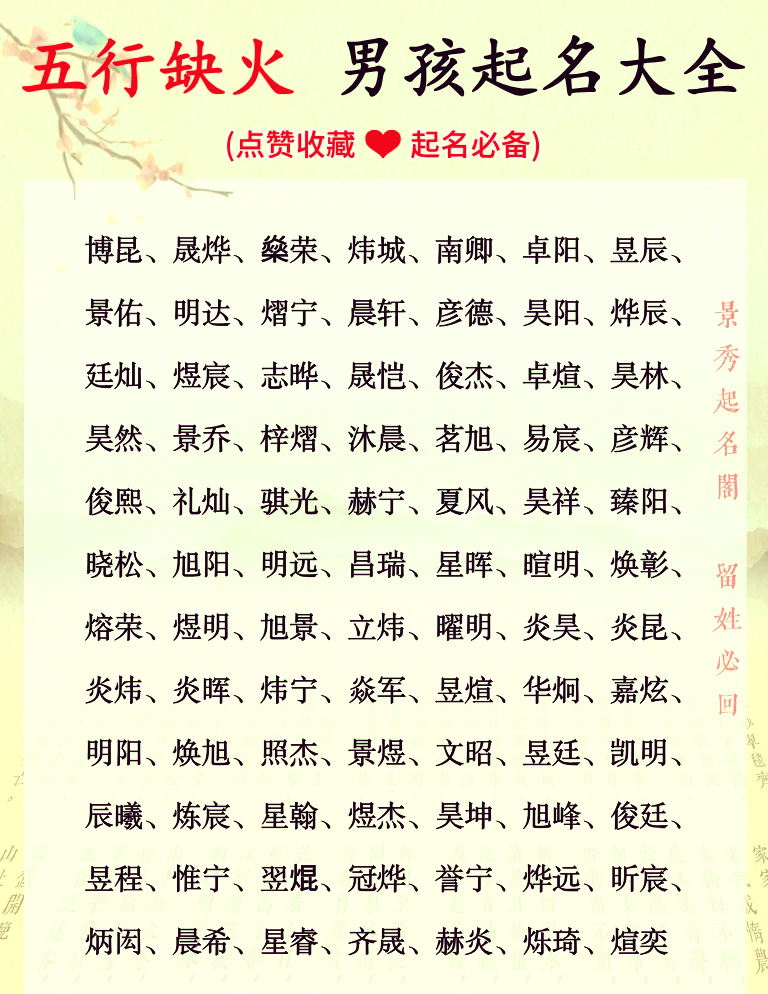 五行缺火 男孩起名大全
(点赞收藏❤起名必备)
博昆、晟烨、燊荣、炜城、南卿、卓阳、昱辰、
景佑、明达、熠宁、晨轩、彦德、昊阳、烨辰、
廷灿、煜宸、志晔、晟恺、俊杰、卓煊、昊林、
昊然、景乔、梓熠、沐晨、茗旭、易宸、彦辉、
俊熙、礼灿、骐光、赫宁、夏风、昊祥、臻阳、
晓松、旭阳、明远、昌瑞、星晖、暄明、焕彰、
熔荣、煜明、旭景、立炜、曜明、炎昊、炎昆、
炎炜、炎晖、炜宁、焱军、昱煊、华炯、嘉炫、
明阳、焕旭、照杰、景煜、文昭、昱廷、凯明、
辰曦、炼宸、星翰、煜杰、昊坤、旭峰、俊廷、
昱程、惟宁、翌焜、冠烨、誉宁、烨远、昕宸、
炳闳、晨希、星睿、齐晟、赫炎、烁琦、煊奕
景秀起名閣 留姓必回